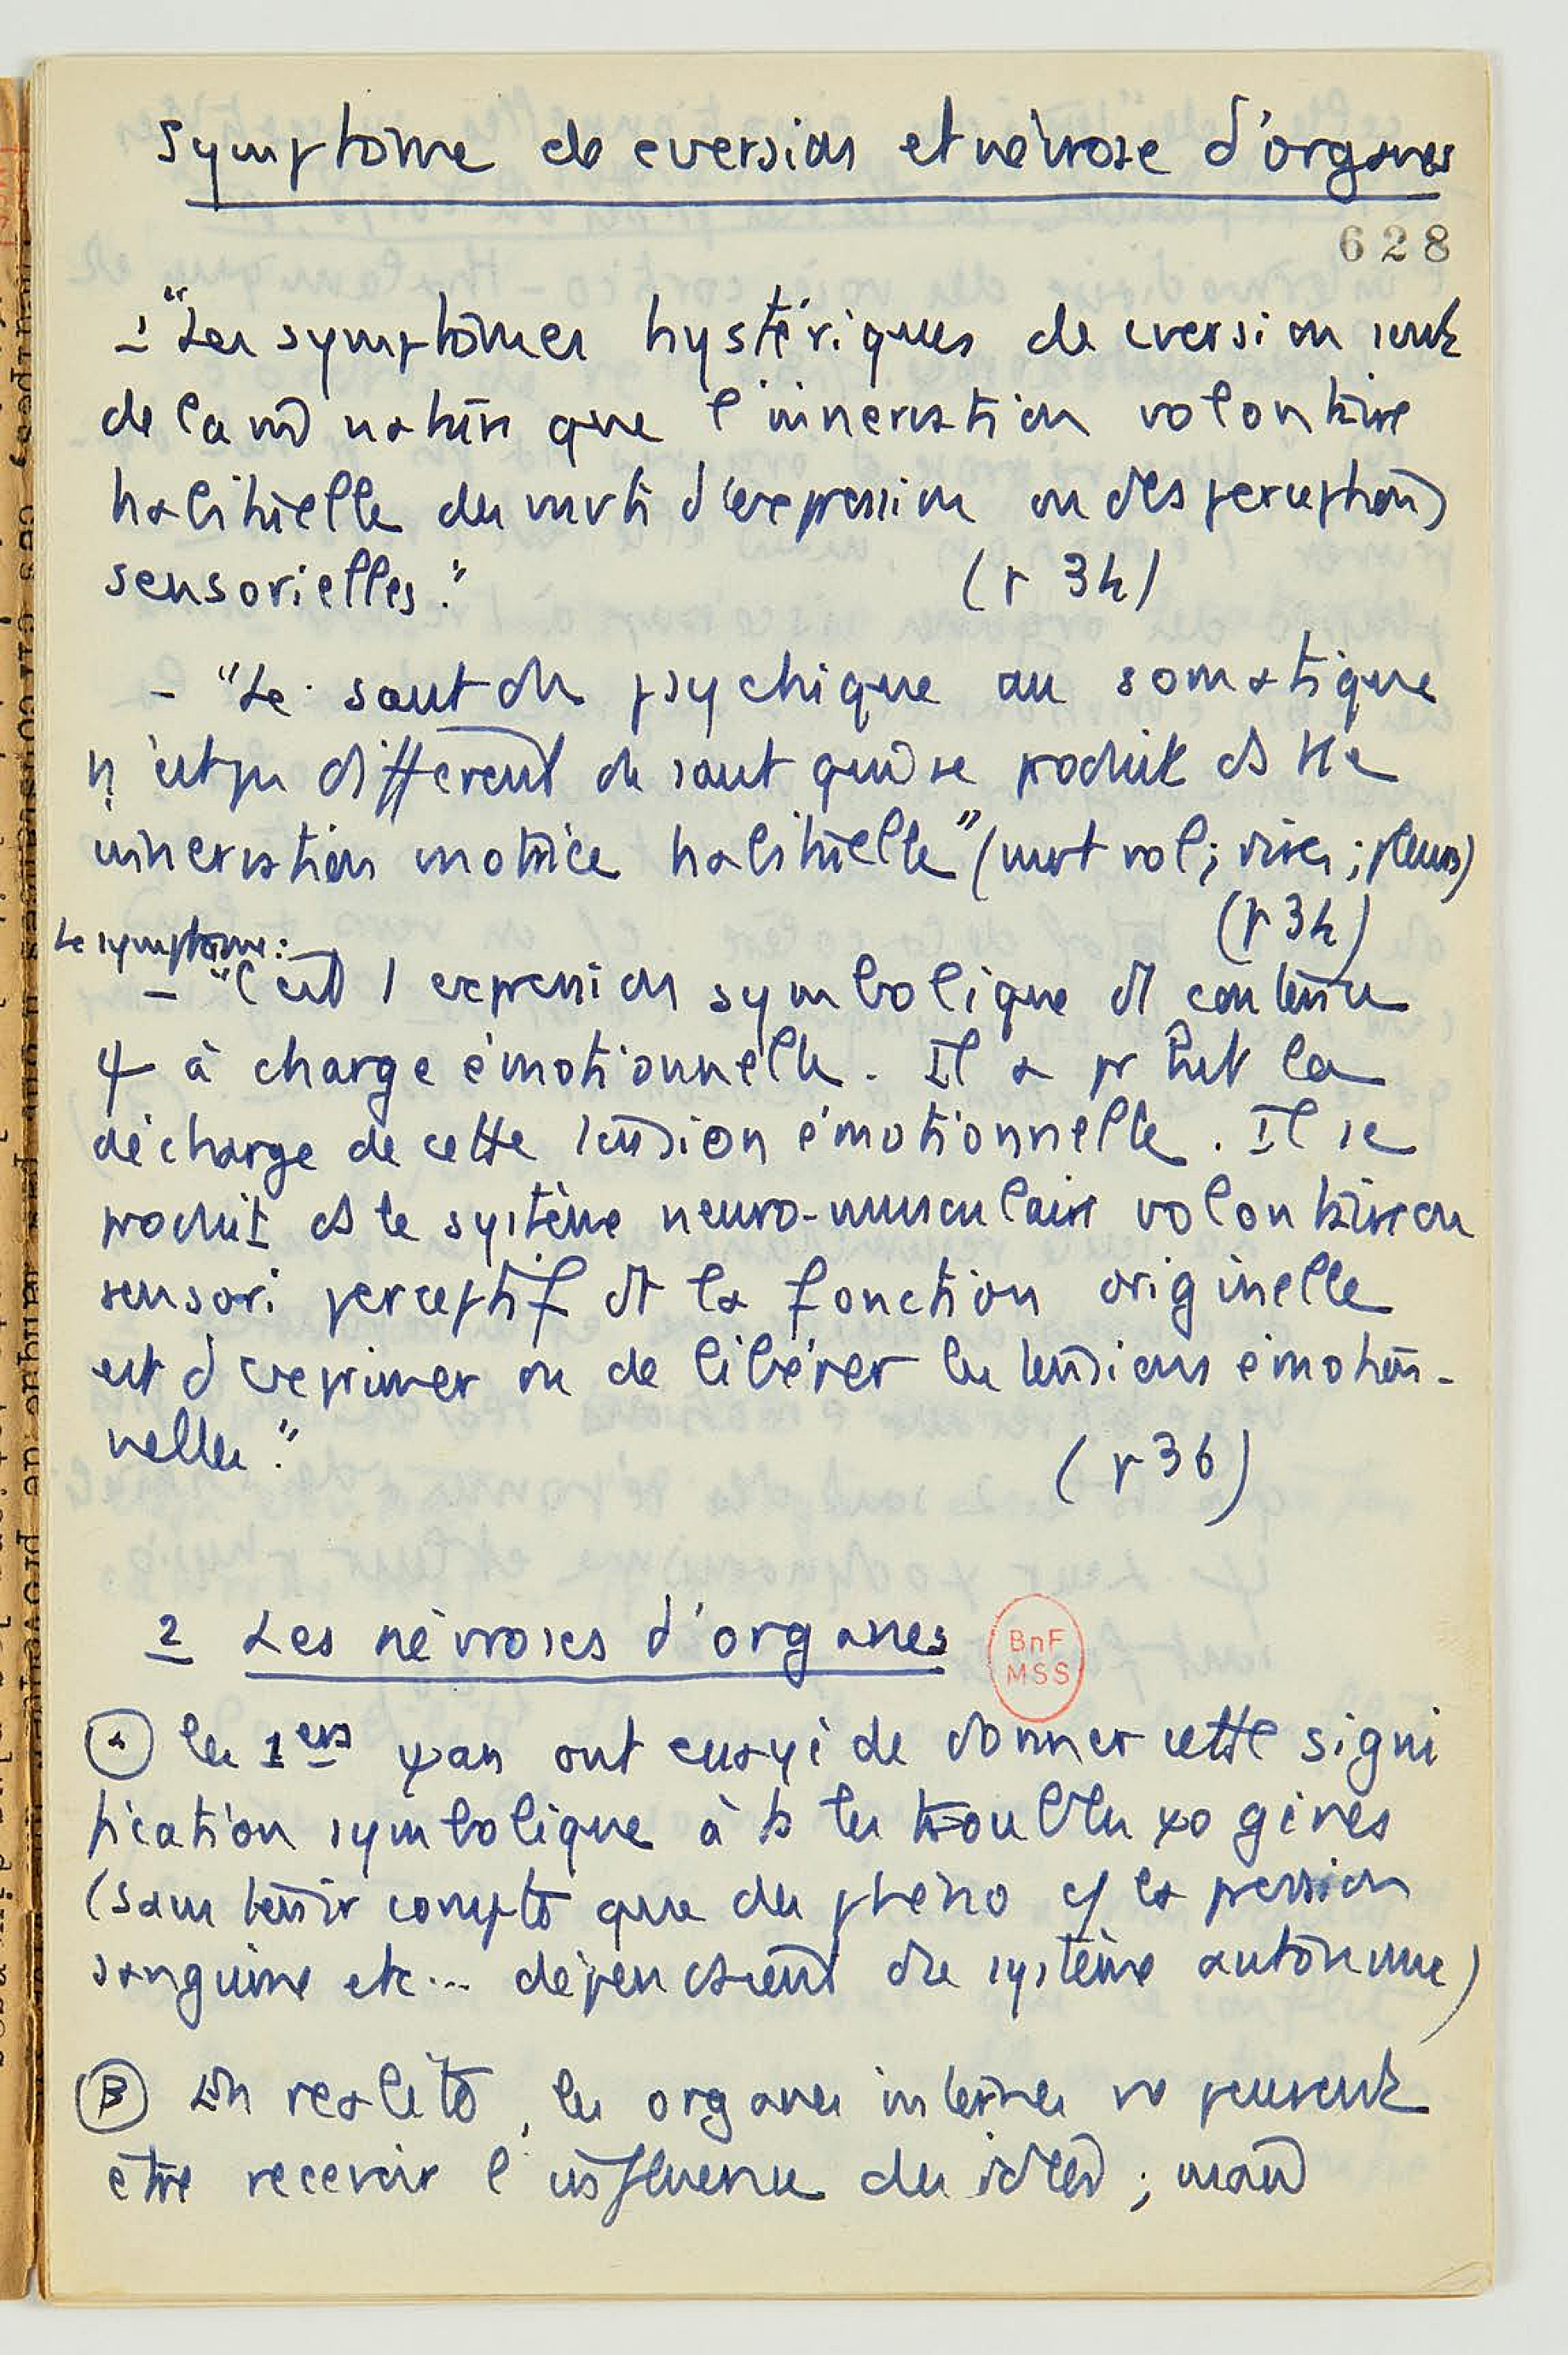 Symptôme de cversion et névrose d'organes
628
1 "Les symptômes hystériques de cversion sont
de la m̂ nature que l'innervation volontaire
habituelle des mvts d'expression ou des perceptions
sensorielles." (p 34)
- "Le saut du psychique au somatique
n'est pas différent du saut qui se produit ds tte
innervation motrice habituelle" (mvt vol; rires; pleurs)
(p 34)
Le symptôme:
- "C'est 1 expression symbolique d'1 contenu
ψ à charge émotionnelle. Il a pr but la
décharge de cette tension émotionnelle. Il se
produit ds le système neuro-musculaire volontaire ou
sensori perceptif dt la fonction originelle
est d'exprimer ou de libérer les tensions émotion-
nelles." (p 36)
2 Les névroses d'organes
BnF
MSS
les 1ers ψan ont essayé de donner cette signi
fication symbolique à ts les troubles ψogènes
(sans tenir compte que des phéno c/ la pression
sanguine etc... dépendaient du système autonome)
β En réalité, les organes internes ne peuvent
être recevoir l'influence des idées ; mais